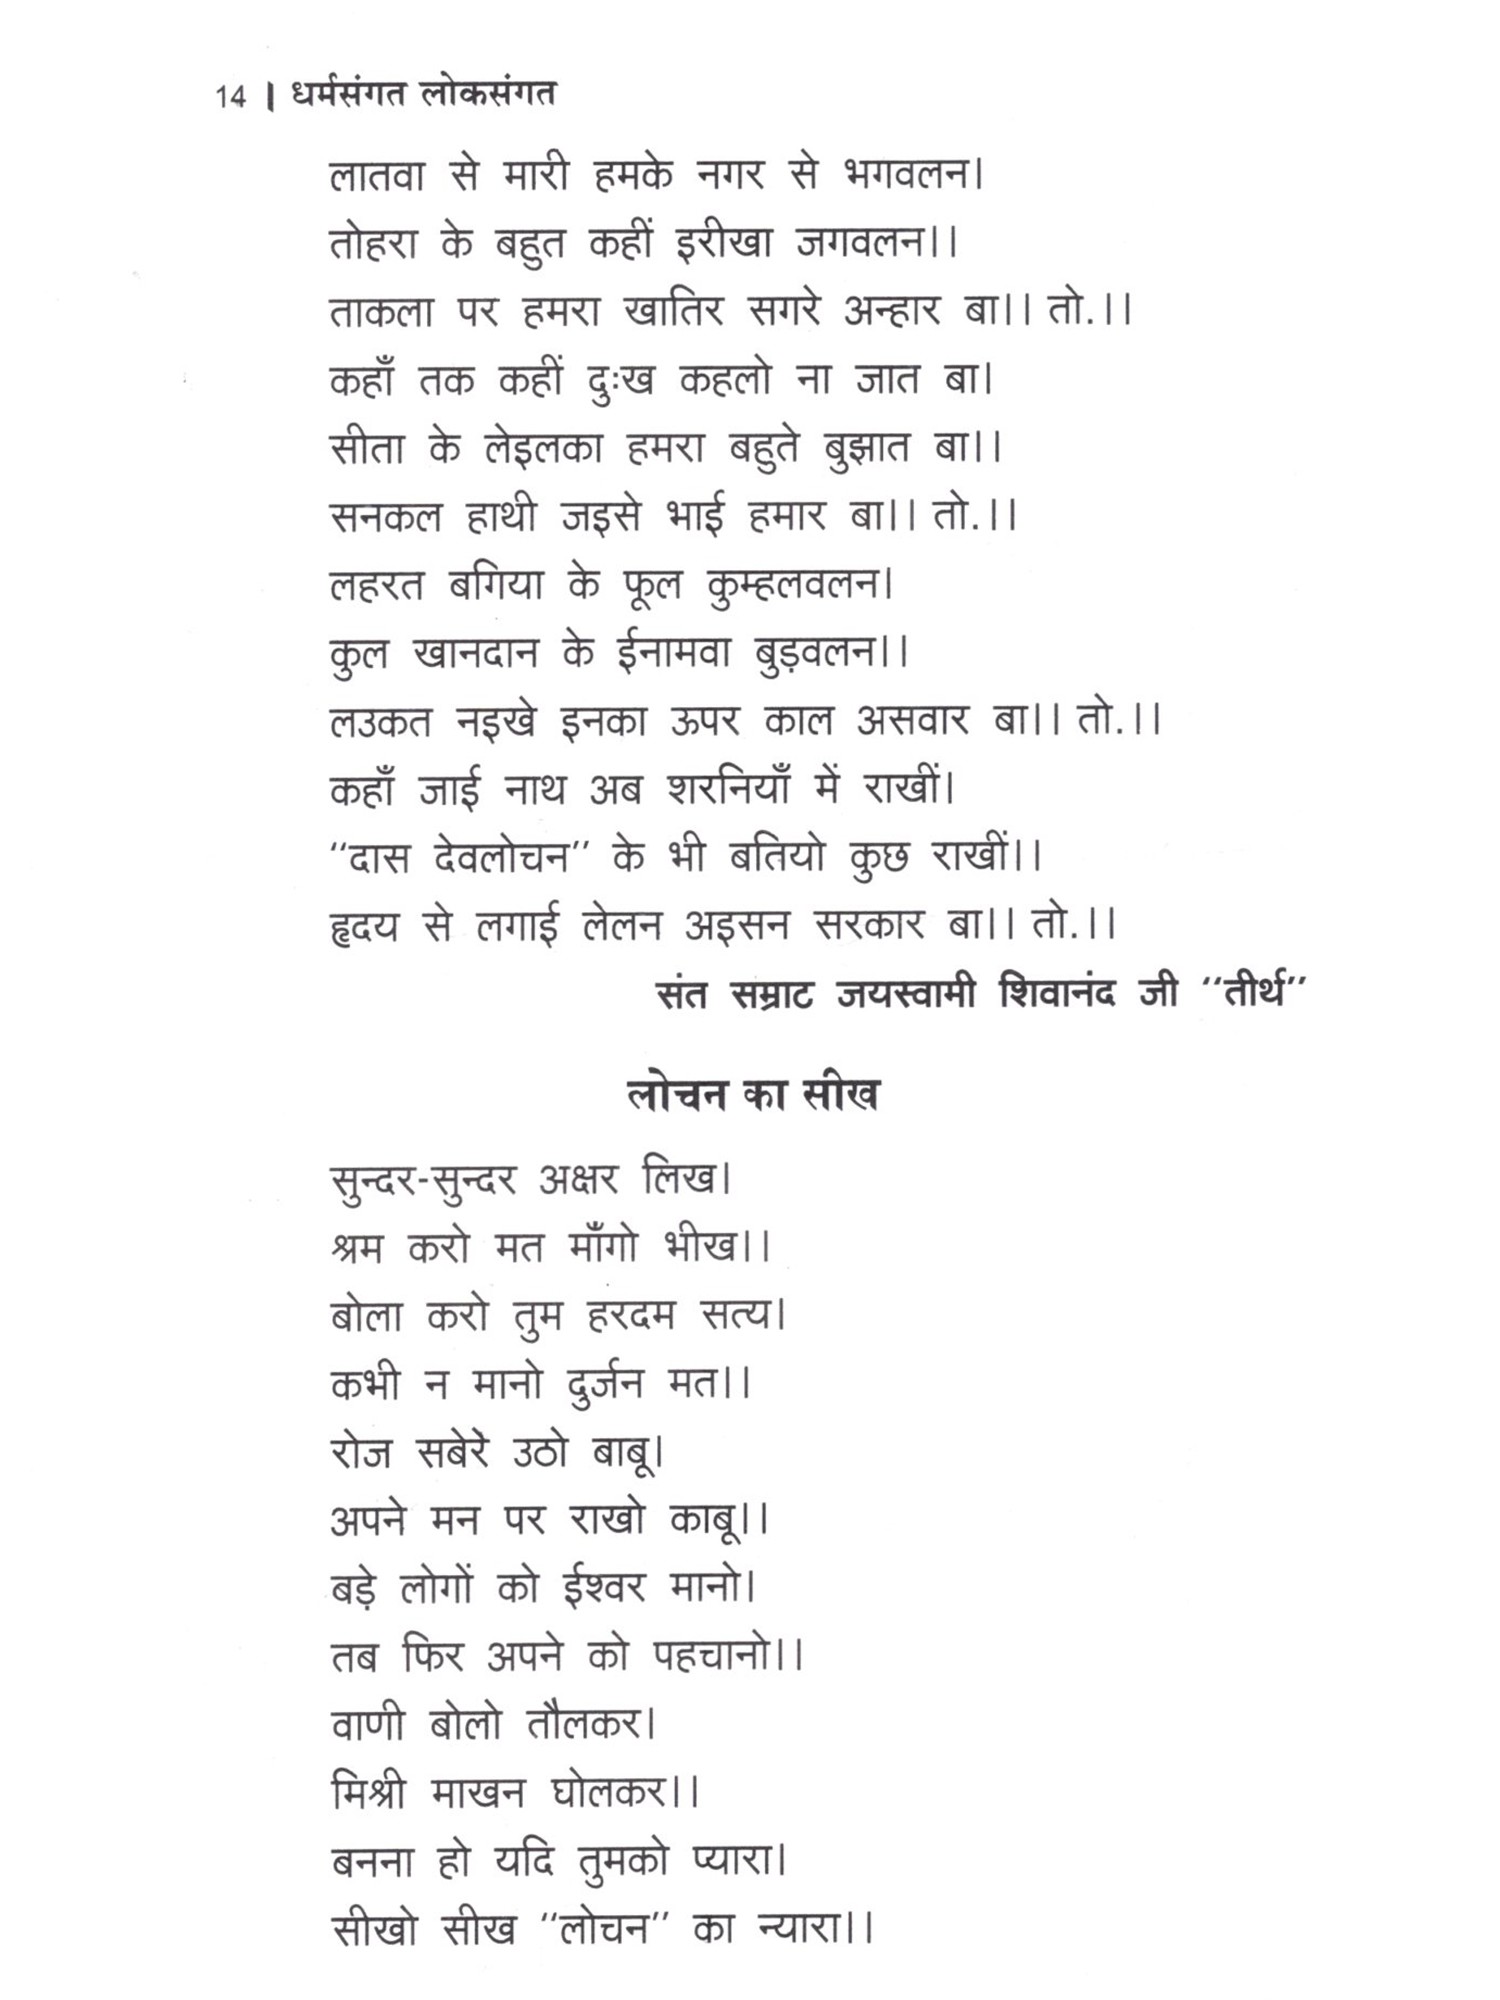 14 | धर्मसंगत लोकसंगत
लातवा से मारी हमके नगर से भगवलन।
तोहरा के बहुत कहीं इरीखा जगवलन।।
ताकला पर हमरा खातिर सगरे अन्हार बा।। तो.।।
कहाँ तक कहीं दुःख कहलो ना जात बा।
सीता के लेइलका हमरा बहुते बुझात बा।।
सनकल हाथी जइसे भाई हमार बा।। तो.।।
लहरत बगिया के फूल कुम्हलवलन।
कुल खानदान के ईनामवा बुड़वलन।।
लउकत नइखे इनका ऊपर काल असवार बा।। तो.।।
कहाँ जाई नाथ अब शरनियाँ में राखीं।
"दास देवलोचन" के भी बतियो कुछ राखीं।।
हृदय से लगाई लेलन अइसन सरकार बा।। तो.।।
संत सम्राट जयस्वामी शिवानंद जी "तीर्थ"
लोचन का सीख
सुन्दर-सुन्दर अक्षर लिख।
श्रम करो मत माँगो भीख।।
बोला करो तुम हरदम सत्य।
कभी न मानो दुर्जन मत।।
रोज सबेरे उठो बाबू।
अपने मन पर राखो काबू।।
बड़े लोगों को ईश्वर मानो।
तब फिर अपने को पहचानो।।
वाणी बोलो तौलकर।
मिश्री माखन घोलकर।।
बनना हो यदि तुमको प्यारा।
सीखो सीख "लोचन" का न्यारा।।